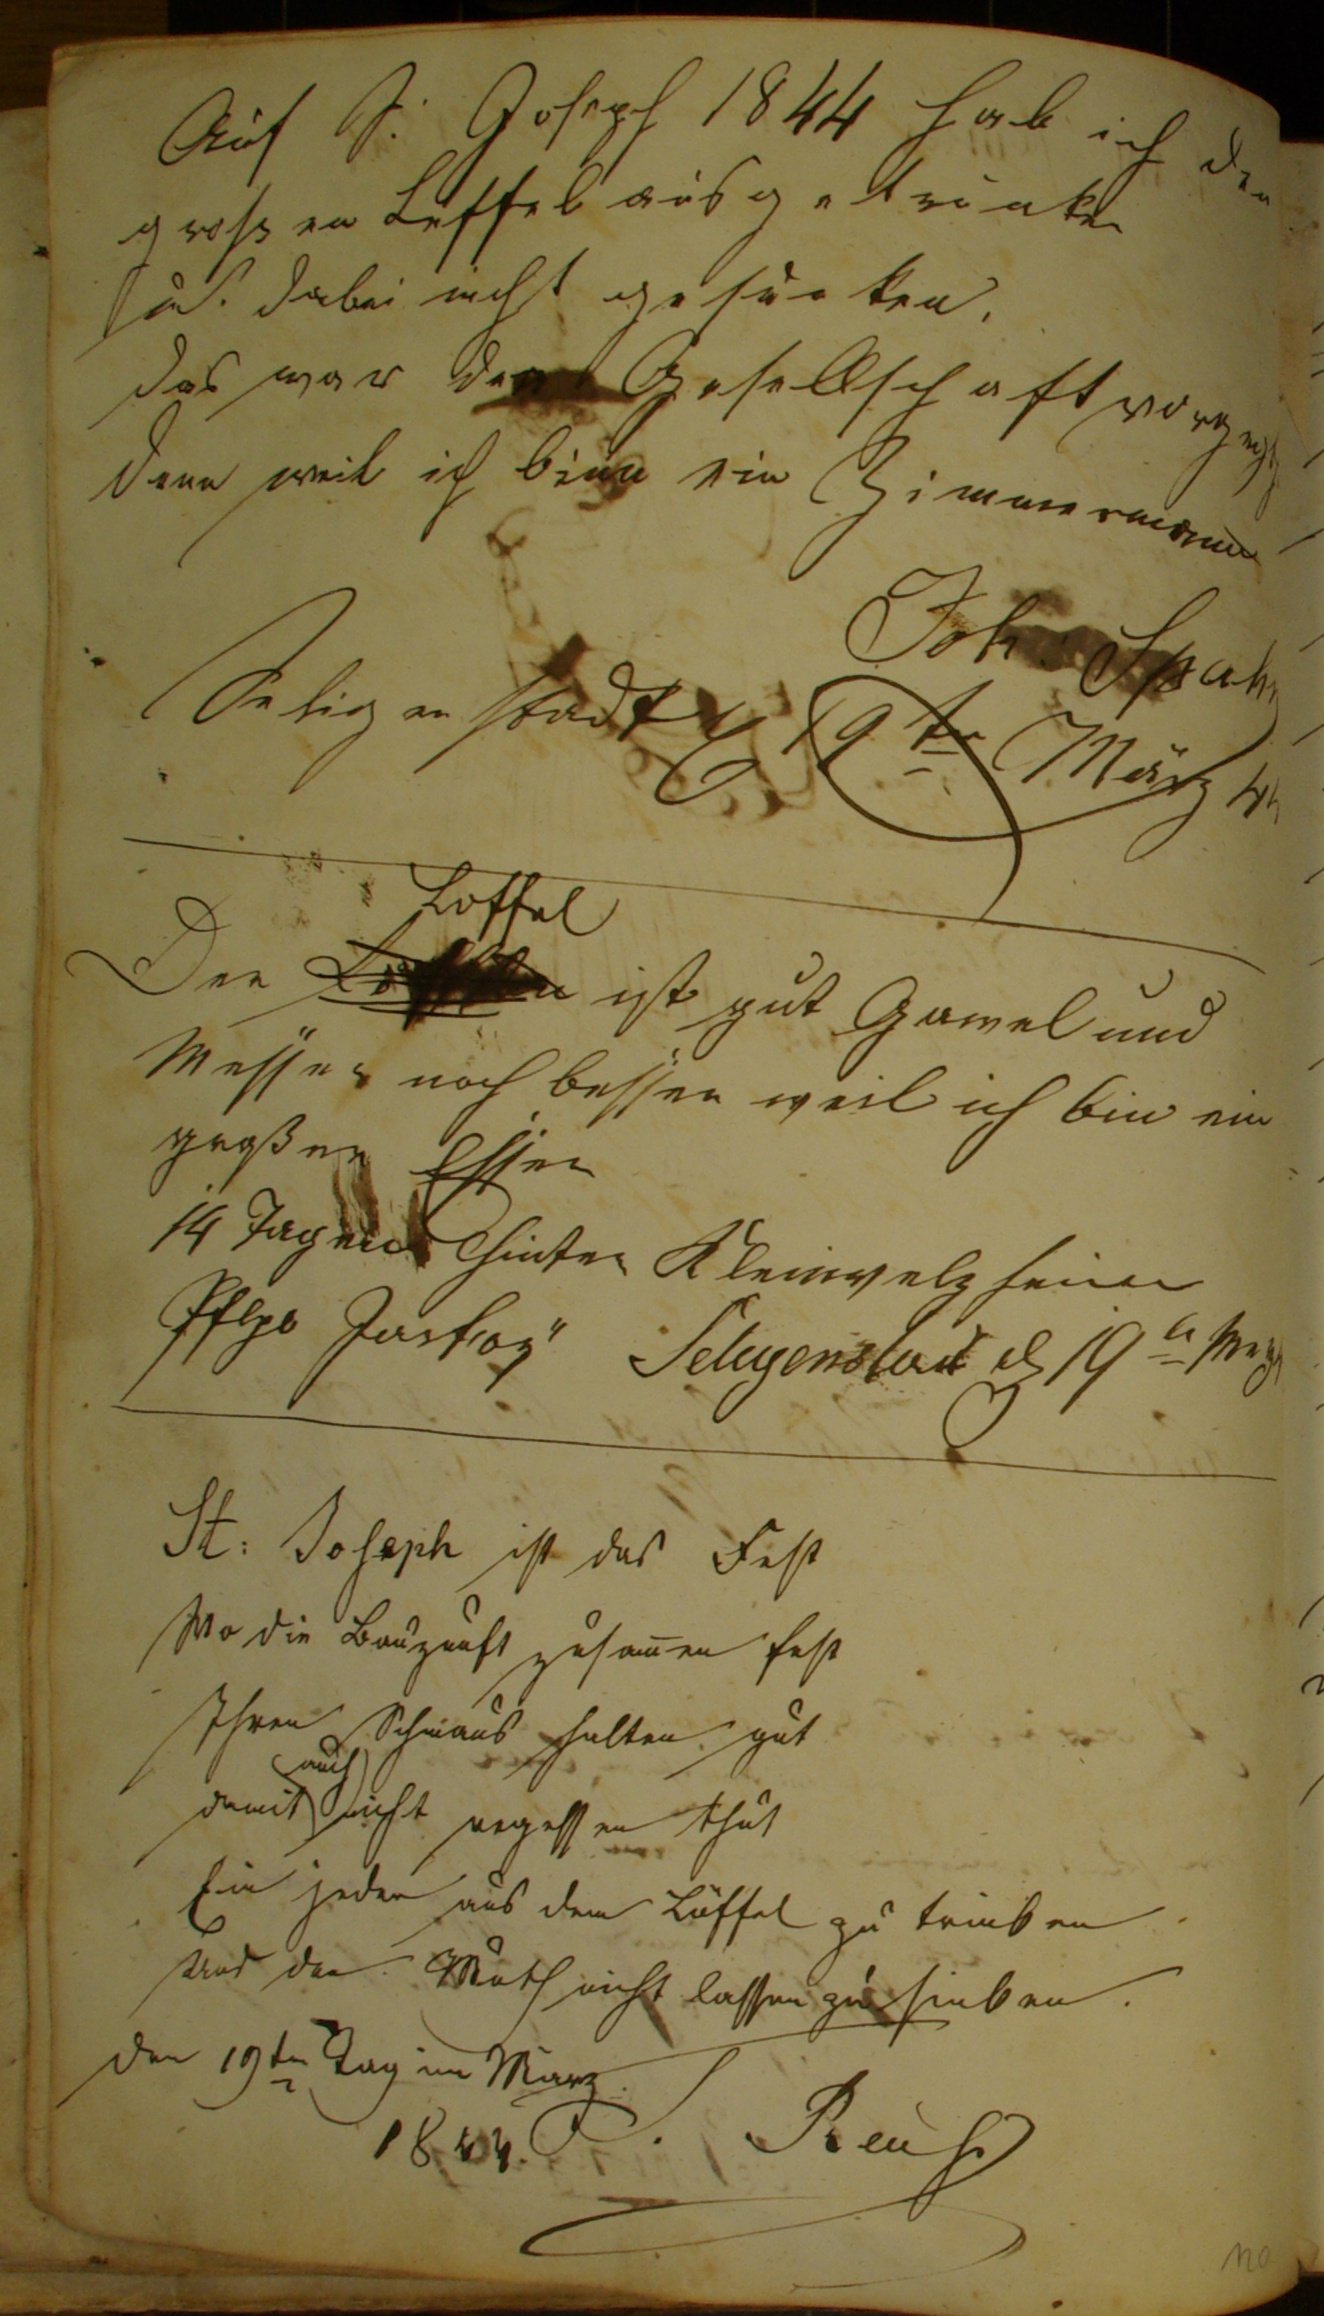 Auf S. Joseph 1844 hab ich den
großen Leffel ausgetrunken
u. dabei nicht gesunken.
das war der Gesellschaft
denn weil ich binn ein Zimmermann
Joh: Spahn
Seligenstadt d 19te März 44
Löffel
Der ist gut Gawel und
Messer noch besser weil ich bin ein
großer Esser
14 Tag hinter Kleinwelzheim
Seligenstad d 19te
St: Joseph ist das Fest
Wo die Bauzunft zusamen fest
Ihren Schmaus halten gut
auch
damit nicht vegessen thut
Ein jeder aus dem Löffel zu trinken
Und den Muth nicht lassen zu sinken.
den 19ten Tag im März
1844. Reuß